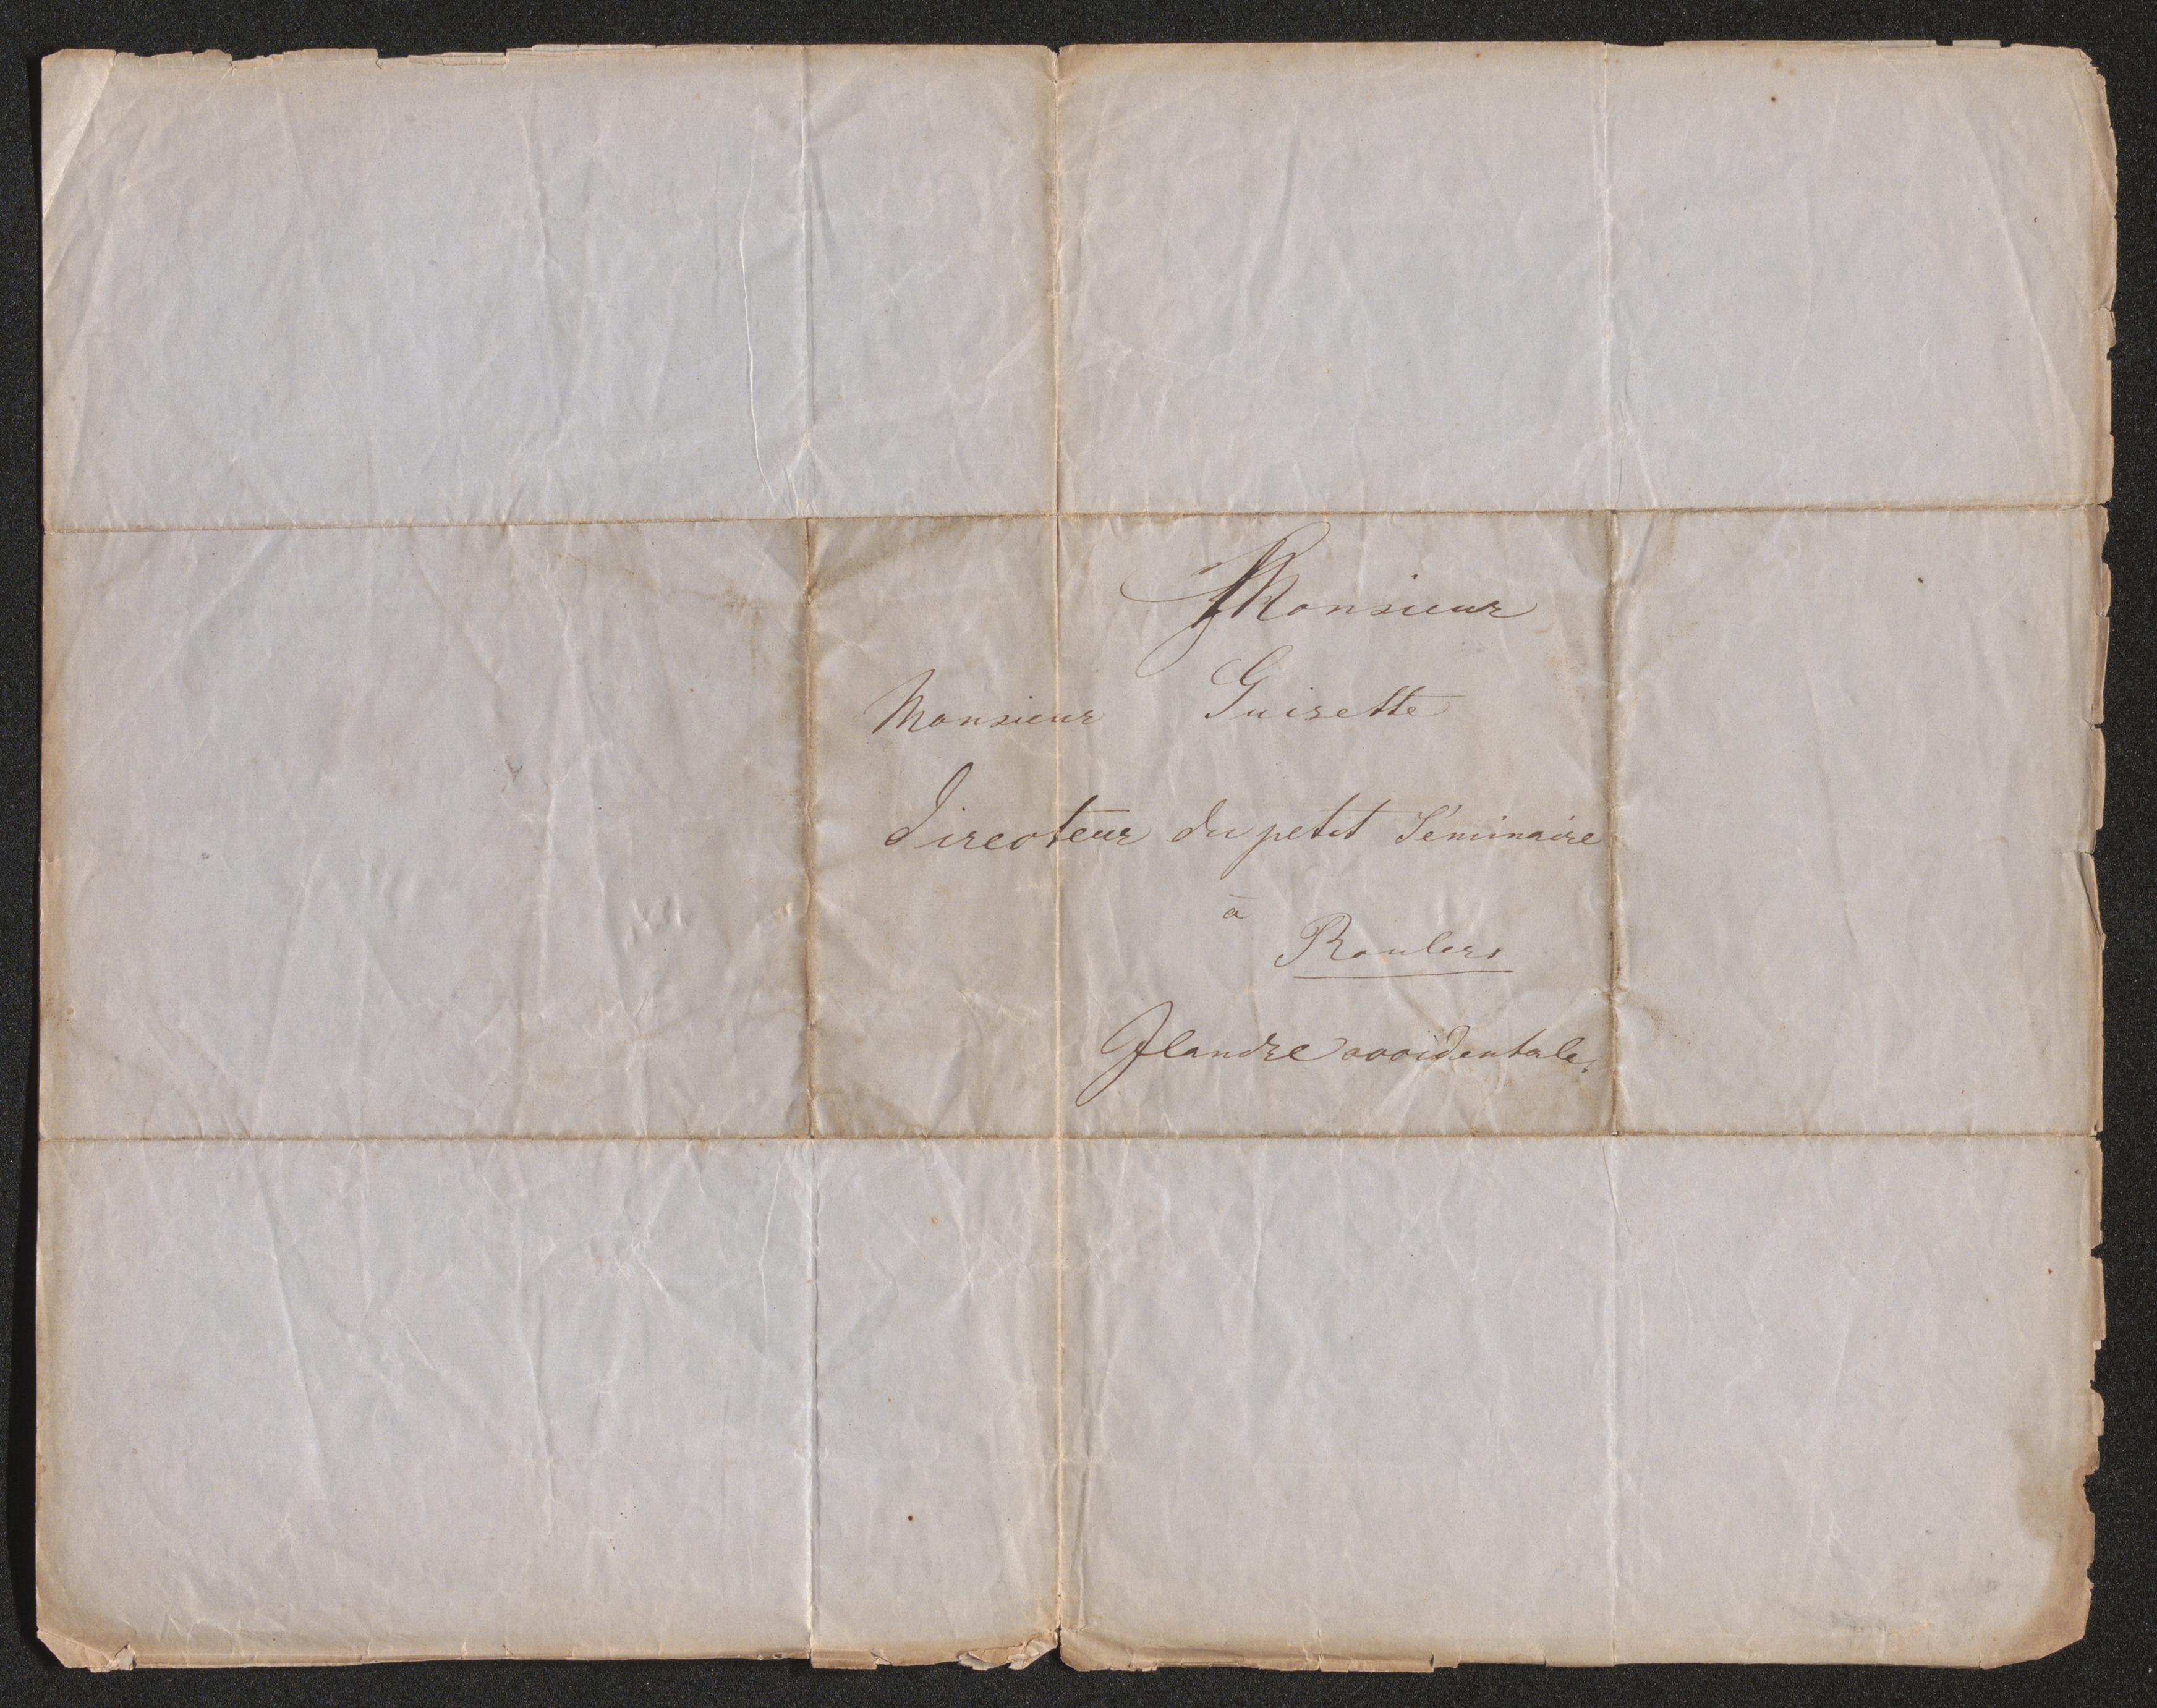 Monsieur
Monsieur Guisette
Directeur du petit Séminaire
à
Roulers
Flandre occidentale.